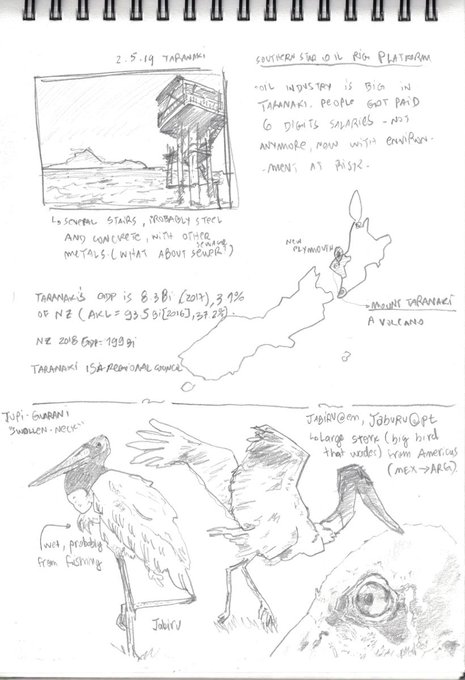 2.5.19 TARANAKI
SOUTHERN STAR OIL RIG PLATFORM
-OIL INDUSTRY IS BIG IN
TARANAKI. PEOPLE GOT PAID
6 DIGITS SALARIES - NOT
ANYMORE, NOW WITH ENVIRON-
-MENT AT RISK.
SEVERAL STAIRS, PROBABLY STEEL
AND CONCRETE, WITH OTHER
METALS. (WHAT ABOUT SEWER?)
SEWAGE
NEW
PLYMOUTH
TARANAKI'S GDP IS 8.3 Bi (2017), 3.1%
OF NZ (AKL = 93.5 Bi [2016], 37.2%).
MOUNT TARANAKI
A VOLCANO
NZ 2018 GDP= 199 Bi
TARANAKI IS A REGIONAL COUNCIL
TUPI-GUARANI
"SWOLLEN-NECK"
JABIRU@en, JABURU@pt
Large stork (big bird
that wades) from Americas
(MEX→ARG).
wet, probably
from fishing
Jabiru